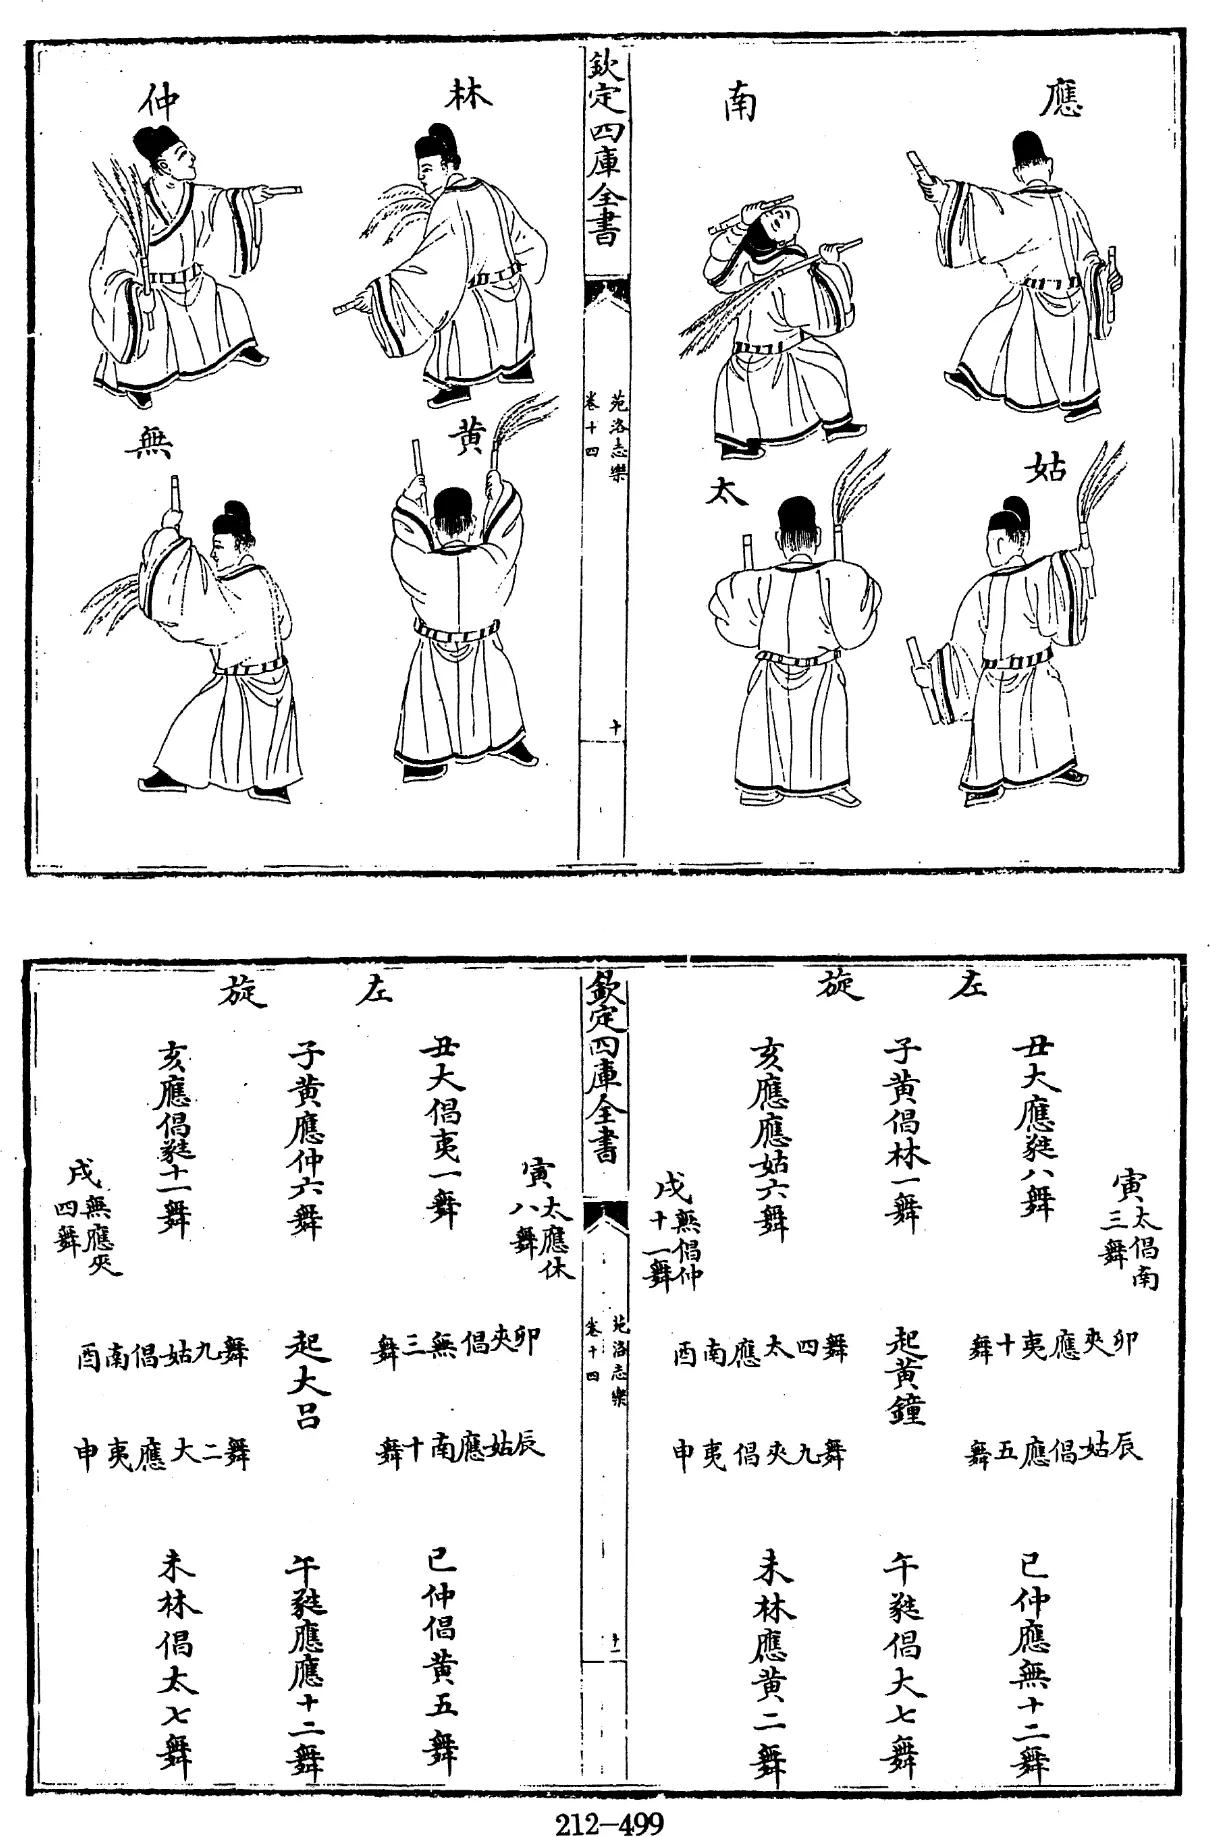 應
南
姑
太
欽定四庫全書
苑洛志樂
卷十四
十
林
仲
黃
無
左旋
丑大應蕤八舞
子黃倡林一舞
亥應應姑六舞
寅太倡南三舞
戌無倡仲十一舞
卯夾應夷十舞
起黃鐘
酉南應太四舞
辰姑倡應五舞
申夷倡夾九舞
已仲應無十二舞
午蕤倡大七舞
未林應黃二舞
欽定四庫全書
苑洛志樂
卷十四
十一
左旋
丑大倡夷一舞
子黃應仲六舞
亥應倡蕤十一舞
寅太應休八舞
戌無應夾四舞
卯夾倡無三舞
起大呂
酉南倡姑九舞
辰姑應南十舞
申夷應大二舞
已仲倡黃五舞
午蕤應應十二舞
未林倡太七舞
212-499